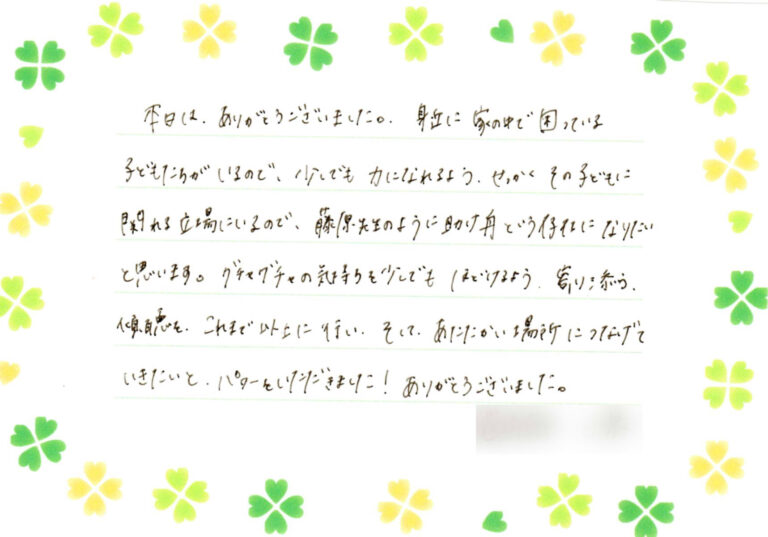 本日は、ありがとうございました。身近に家の中で困っている
子どもたちがいるので、少しでも力になれるよう、せっかくその子どもに
関れる立場にいるので、藤原先生のように助け舟という存在になりたい
と思います。グチャグチャの気持ちを少しでもほどけるよう、寄り添う、
傾聴を、これまで以上に行い、そして、あたたかい場所につなげて
いきたいと、パワーをいただきました！ありがとうございました。